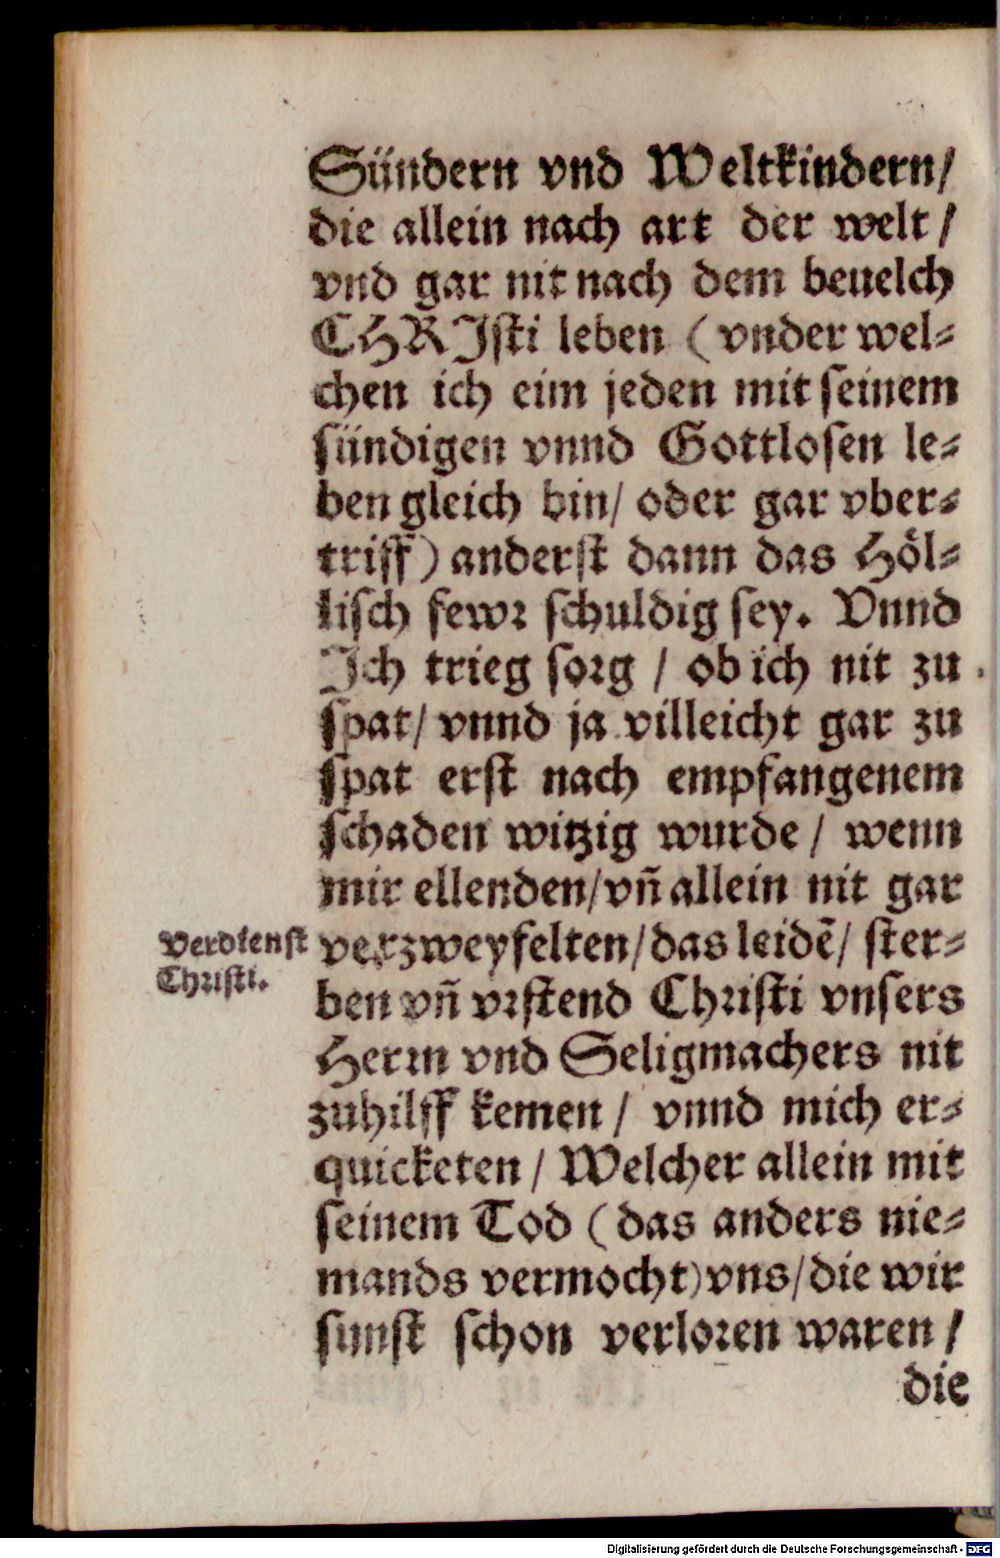 Sündern vnd Weltkindern/
die allein nach art der welt /
vnd gar nit nach dem beuelch
CHRIsti leben (vnder wel⸗
chen ich eim jeden mit seinem
sündigen vnnd Gottlosen le⸗
ben gleich bin/ oder gar vber⸗
triff) anderst dann das Höl⸗
lisch fewr schuldig sey. Vnnd
Ich trieg sorg / ob ich nit zu
spat/ vnnd ja villeicht gar zu
spat erst nach empfangenem
schaden witzig wurde / wenn
mir ellenden/vñ allein nit gar
Verdienst
Christi.
verzweyfelten/das leidẽ/ ster⸗
ben vñ vrstend Christi vnsers
Herrn vnd Seligmachers nit
zuhilff kemen / vnnd mich er⸗
quicketen / Welcher allein mit
seinem Tod (das anders nie⸗
mands vermocht)vns/die wir
sunst schon verloren waren /
die
Digitalisierung gefördert durch die Deutsche Forschungsgemeinschaft - DFG